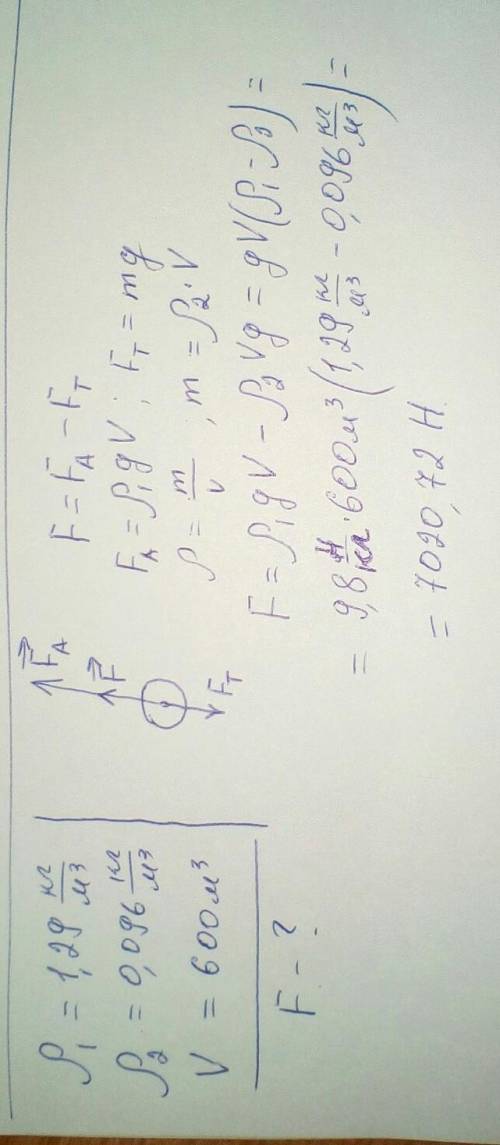 ρ₁ = 1,29 кг/м³
ρ₂ = 0,096 кг/м³
V = 600 м³
F - ?
F⃗_A
F⃗
F_T
F = F_A - F_T
F_A = ρ₁gV ; F_T = mg
ρ = m/V ; m = ρ₂·V
F = ρ₁gV - ρ₂Vg = gV(ρ₁-ρ₂) =
= 9,8 Н/кг · 600 м³ (1,29 кг/м³ - 0,096 кг/м³) =
= 7020,72 Н